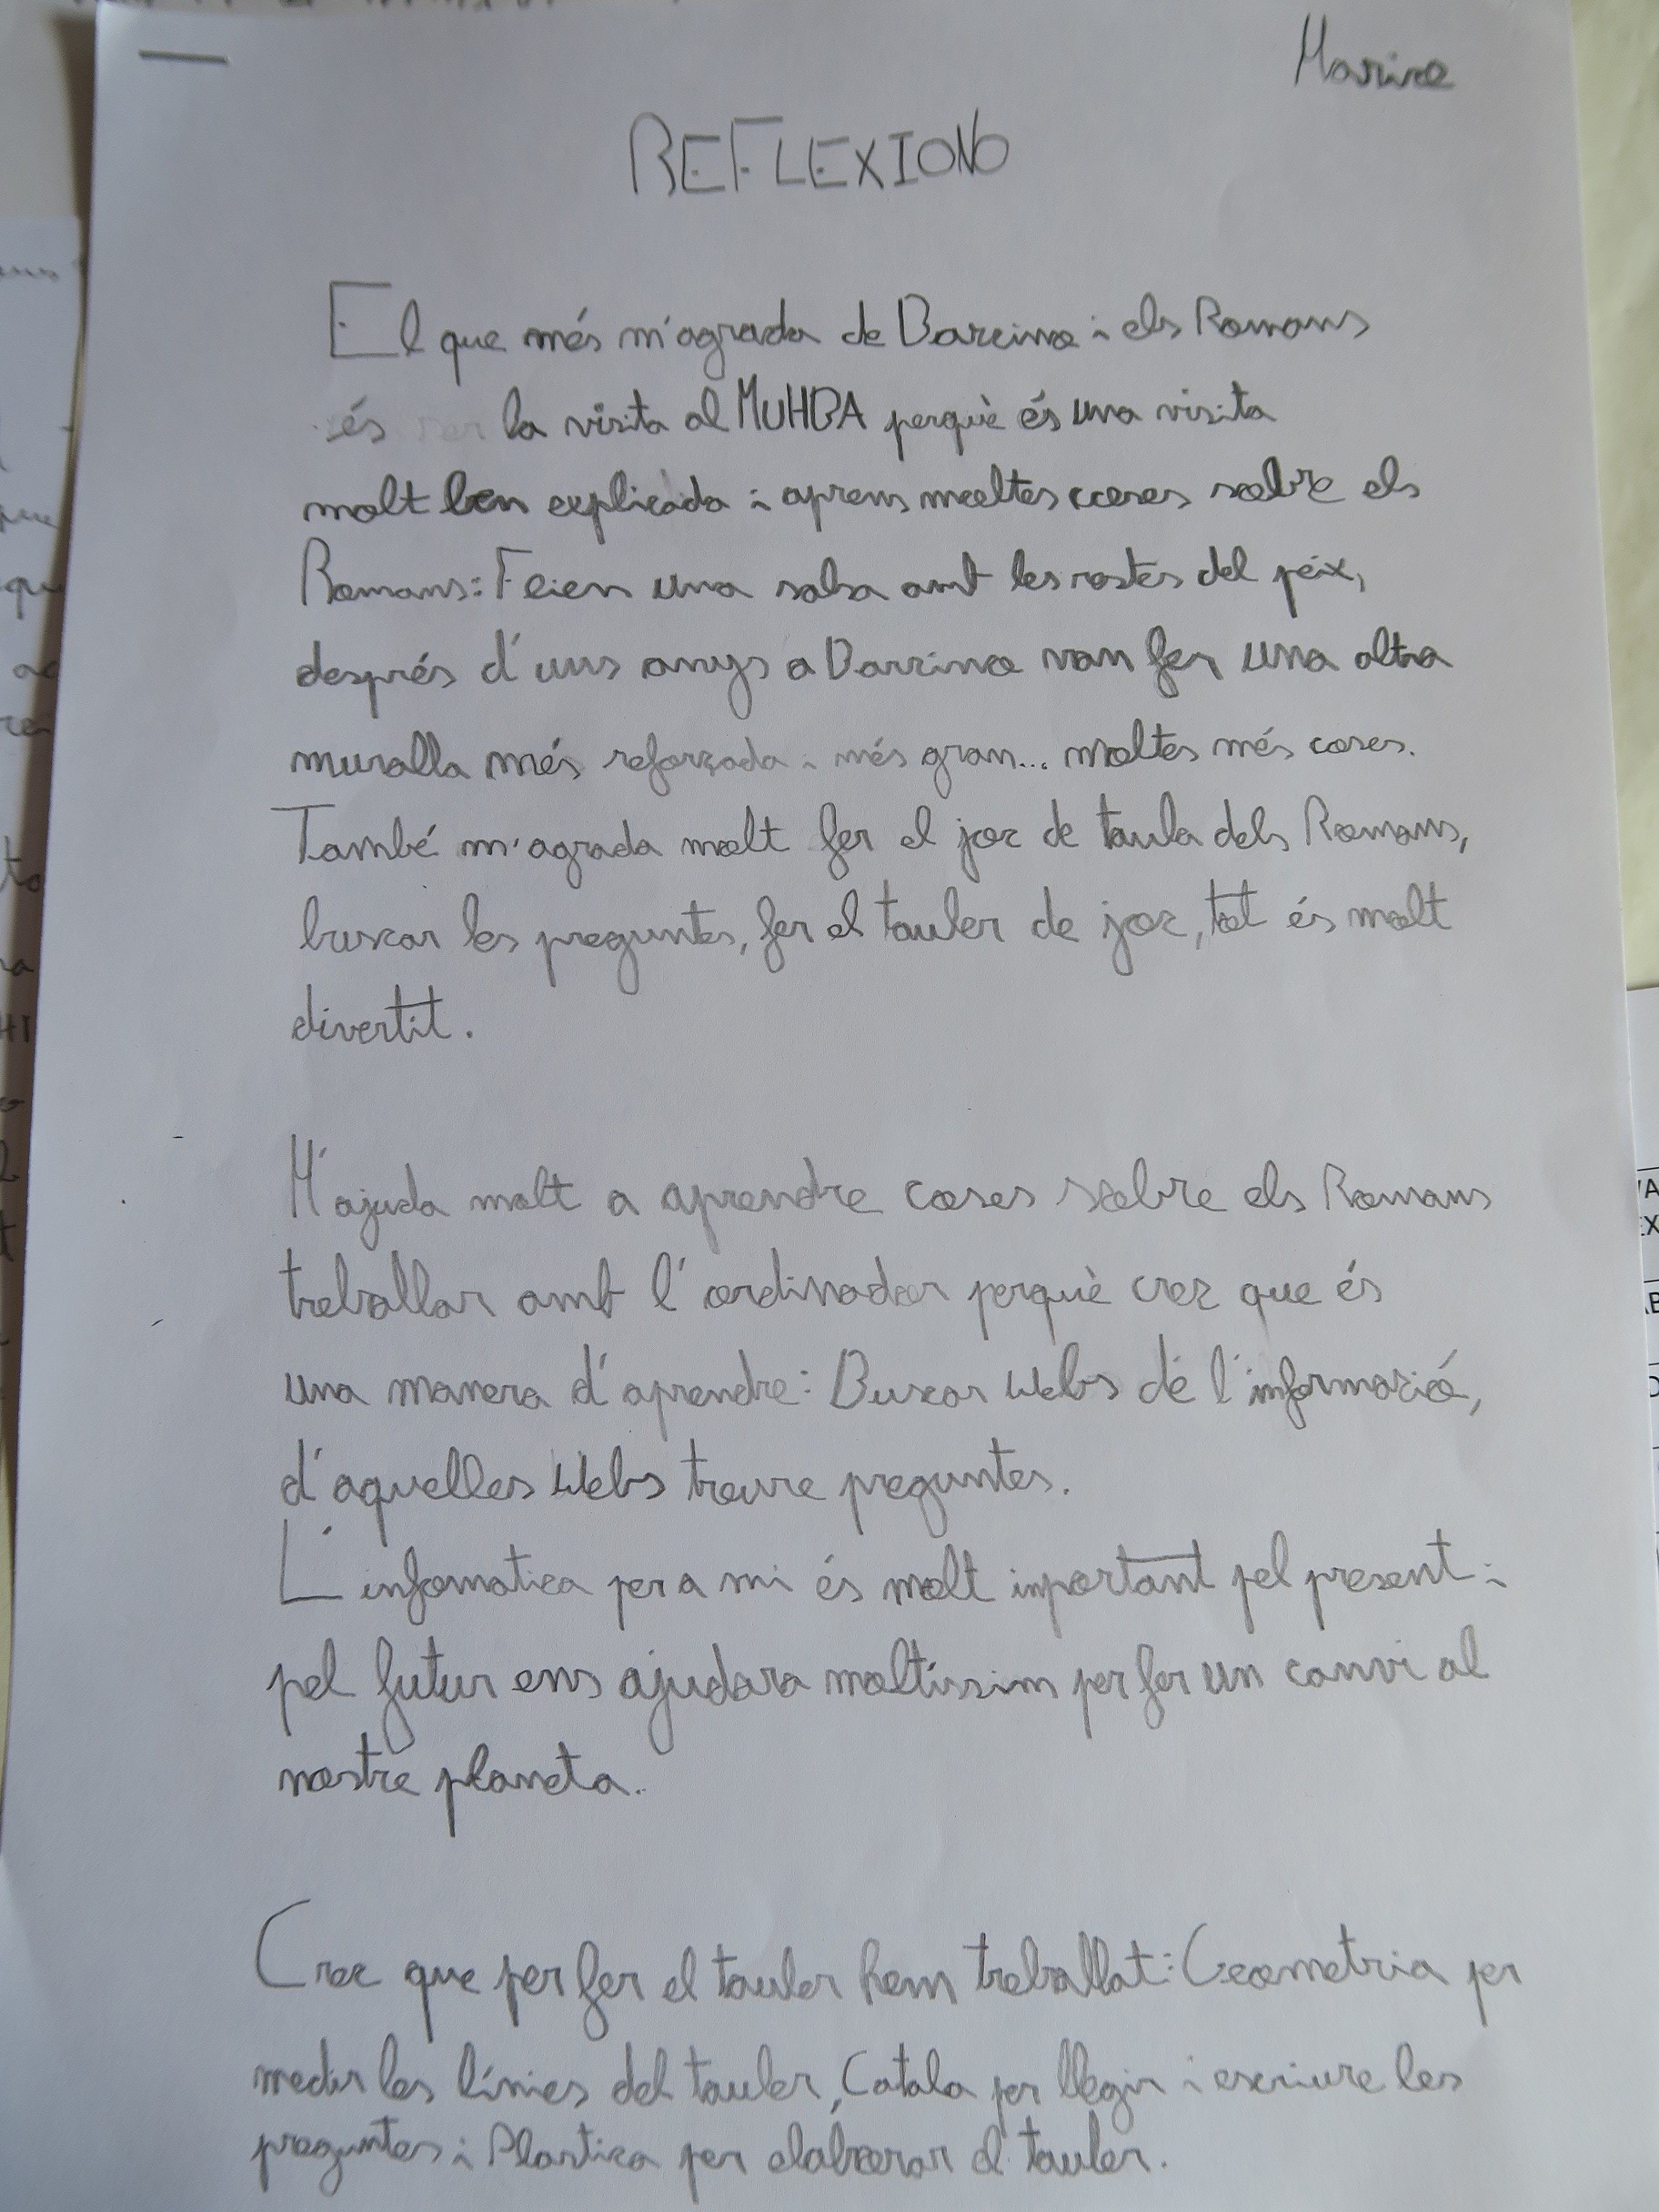 Marina
REFLEXIONO
El que més m'agrada de Barcino i els Romans
és la visita al MUHBA perquè és una visita
molt ben explicada i aprens moltes coses sobre els
Romans: Feien una salsa amb les restes del peix,
després d'uns anys a Barcino van fer una altra
muralla més reforçada i més gran... moltes més coses.
També m'agrada molt fer el joc de taula dels Romans,
buscar les preguntes, fer el tauler de joc, tot és molt
divertit.
M'ajuda molt a aprendre coses sobre els Romans
treballar amb l'ordinador perquè crec que és
una manera d'aprendre: Buscar Webs de l'informació,
d'aquelles Webs treure preguntes.
L'informatica per a mi és molt inportant pel present i
pel futur ens ajudara moltíssim per fer un canvi al
nostre planeta.
Crec que per fer el tauler hem treballat: Geometria per
medir les línies del tauler, Catala per llegir i escriure les
preguntes i Plastica per elaborar el tauler.